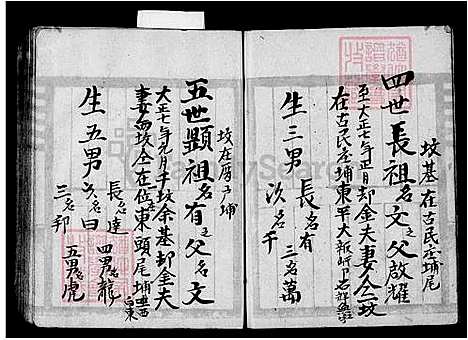 坟基在古民庄埔尾
四世長祖名文之父啟耀
至大正七年正月却金夫妻仝坟
在古民庄埔東平大
生三男
長名有
次名千
三名萬
坟在厝户埔
五世顯祖名有之父名文
大正七年元月于坟余基却金夫
妻両坟仝在位之東頭尾埔
生五男
長名達
次名日
三名邦
四男名龍
五男名虎